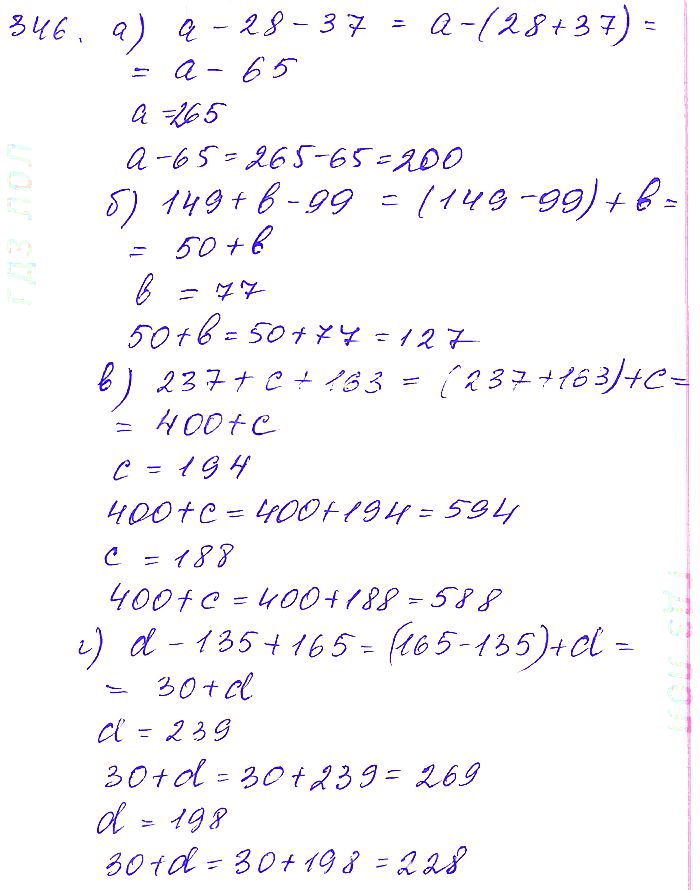 346. а) a - 28 - 37 = a - (28 + 37) =
= a - 65
a = 265
a - 65 = 265 - 65 = 200
б) 149 + b - 99 = (149 - 99) + b =
= 50 + b
b = 77
50 + b = 50 + 77 = 127
в) 237 + c + 163 = (237 + 163) + c =
= 400 + c
c = 194
400 + c = 400 + 194 = 594
c = 188
400 + c = 400 + 188 = 588
г) d - 135 + 165 = (165 - 135) + d =
= 30 + d
d = 239
30 + d = 30 + 239 = 269
d = 198
30 + d = 30 + 198 = 228
ГДЗ ЛОЛ
ГДЗ ЛОЛ